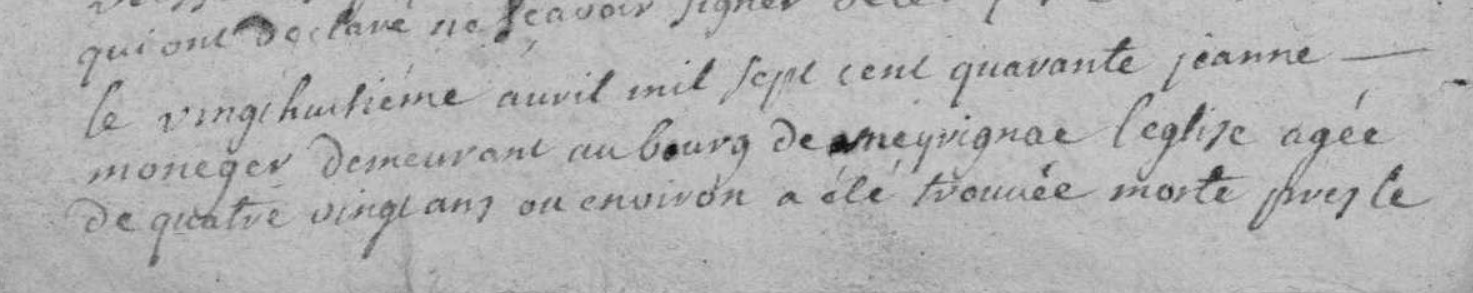 qui ont declaré ne sçavoir signer de ce
le vingthuitiéme avril mil sept cent quarante jeanne —
moneger demeurant au bourg de meyrignac l'eglise agée
de quatre vingt ans ou environ a été trouvée morte prez le